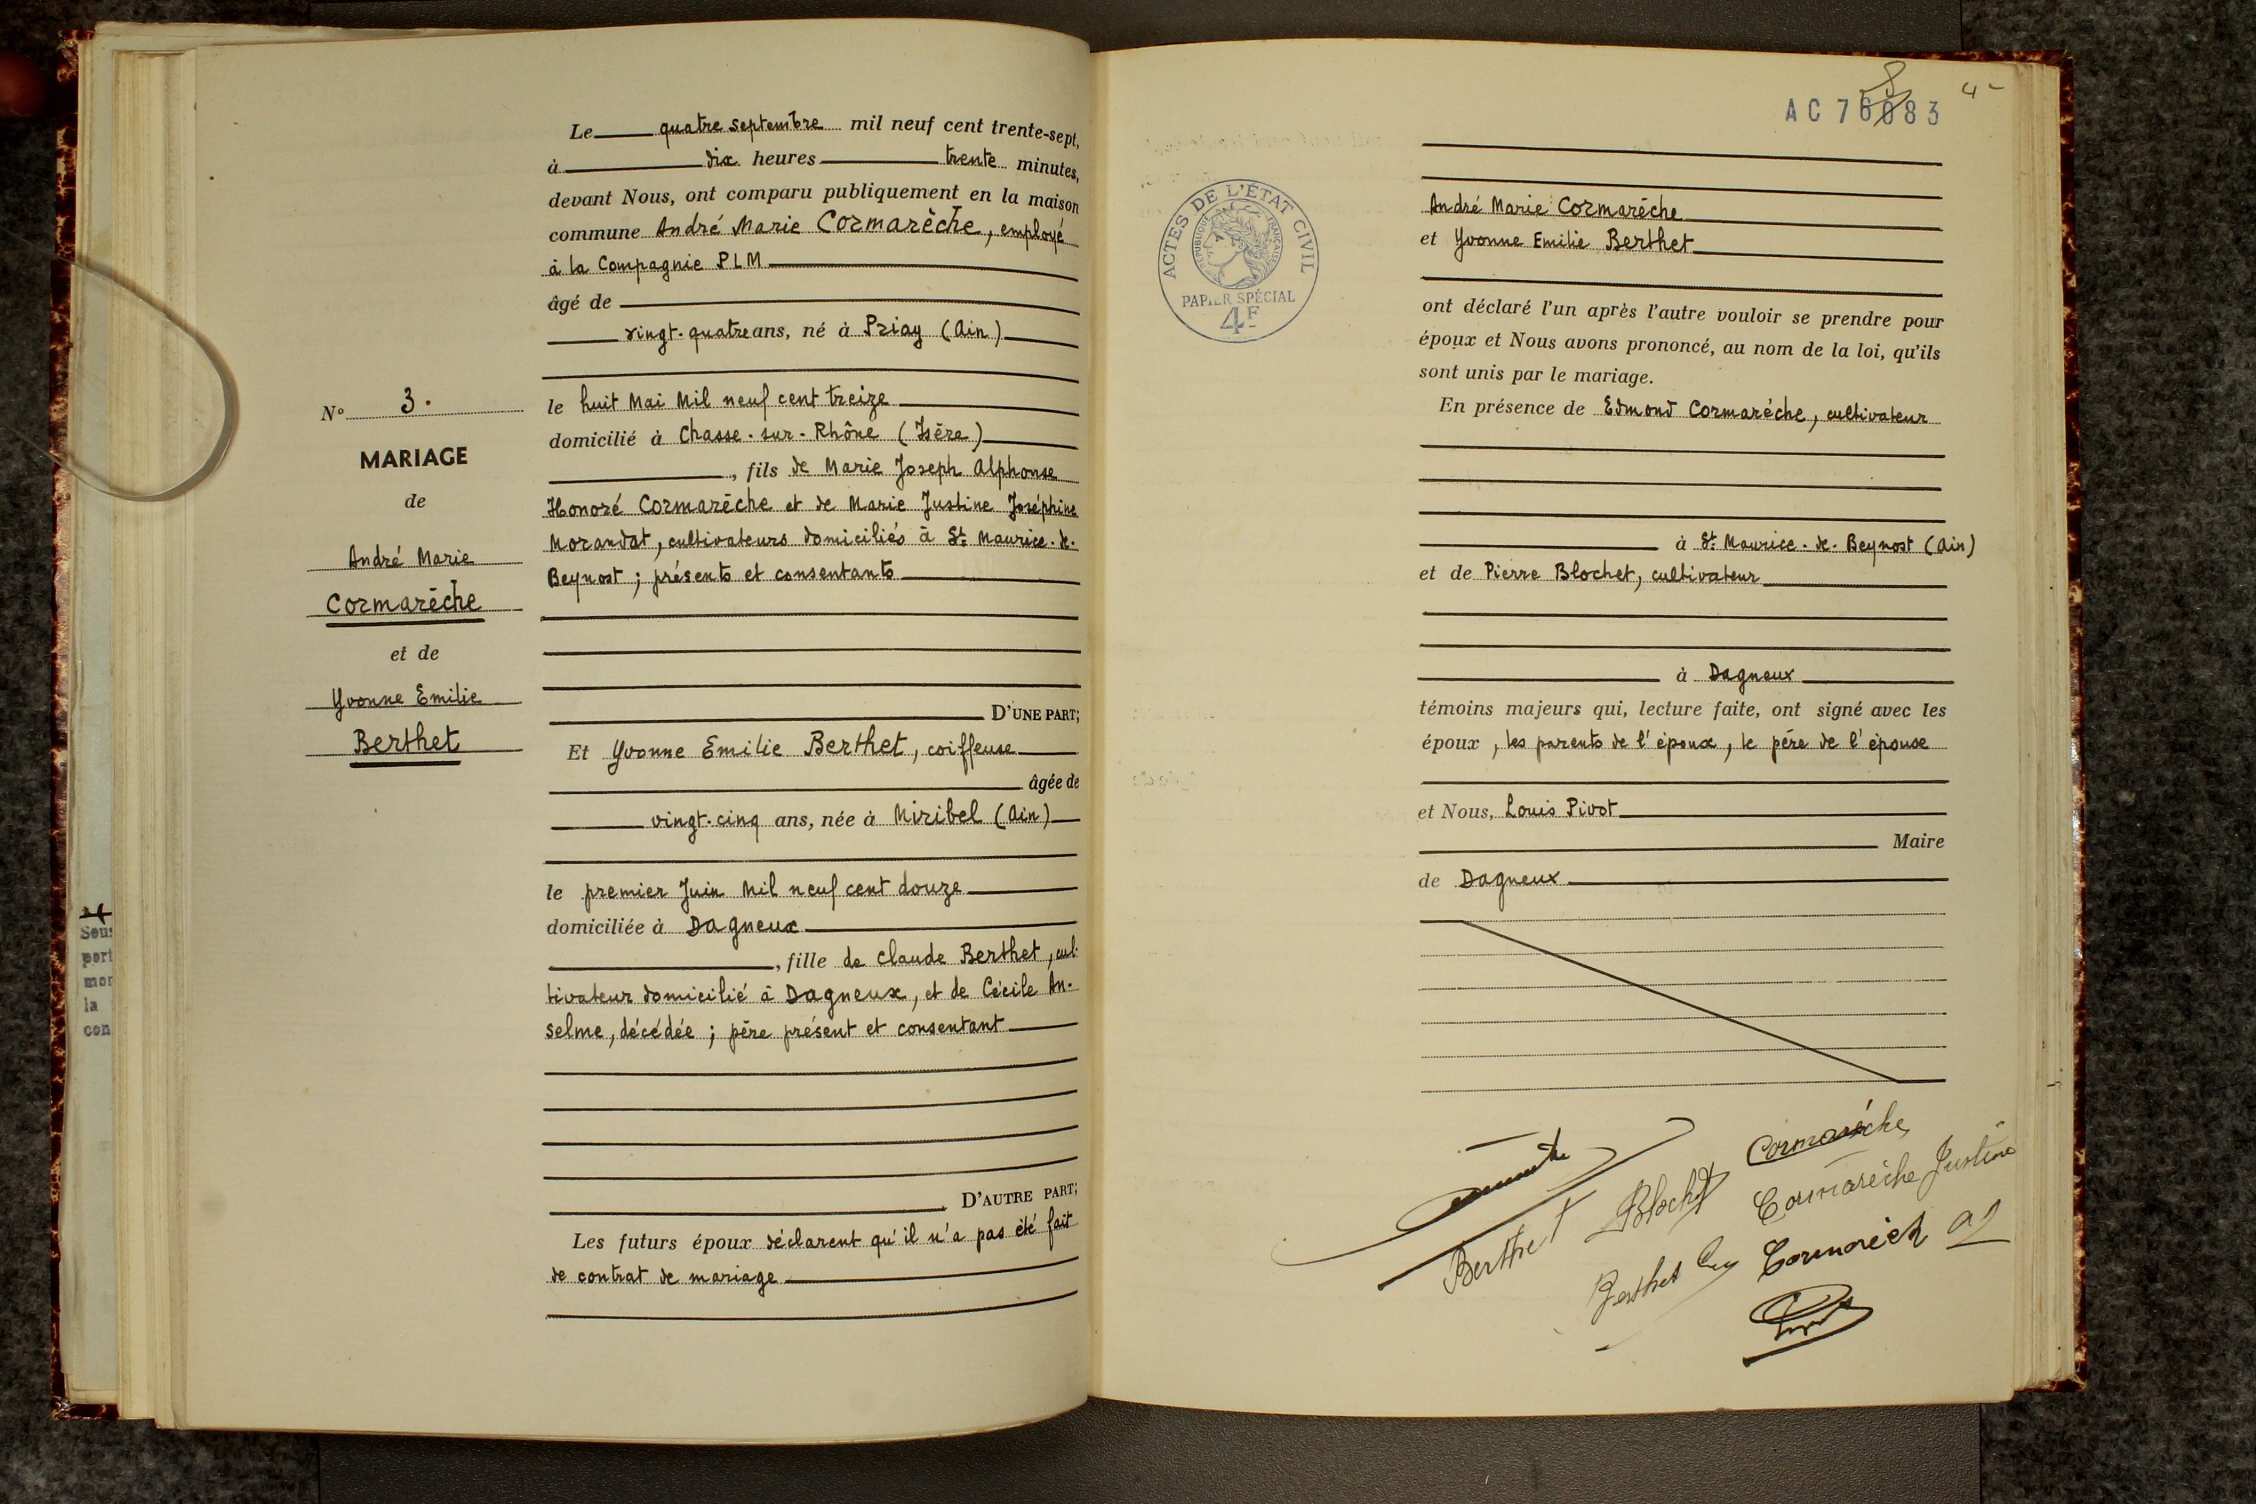 Le quatre septembre mil neuf cent trente-sept,
à dix heures trente minutes,
devant Nous, ont comparu publiquement en la maison
commune André Marie Cormarèche, employé
à la Compagnie PLM
âgé de
vingt-quatre ans, né à Priay (Ain)
le huit Mai Mil neuf cent treize
domicilié à Chasse-sur-Rhône (Isère)
, fils de Marie Joseph Alphonse
Honoré Cormarèche et de Marie Justine Joséphine
Morandat, cultivateurs domiciliés à St Maurice-de-
Beynost ; présents et consentants
D'UNE PART;
Et Yvonne Emilie Berthet, coiffeuse
âgée de
vingt-cinq ans, née à Miribel (Ain)
le premier Juin Mil neuf cent douze
domiciliée à Dagneux
, fille de Claude Berthet, cul-
tivateur domicilié à Dagneux, et de Cécile An-
selme, décédée ; père présent et consentant
D'AUTRE PART;
Les futurs époux déclarent qu'il n'a pas été fait
de contrat de mariage
No 3.
MARIAGE
de
André Marie
Cormarèche
et de
Yvonne Emilie
Berthet
Sous
port
mor
la
con
AC 76083
4
ACTES DE L'ÉTAT CIVIL
RÉPUBLIQUE FRANÇAISE
PAPIER SPÉCIAL
4F
André Marie Cormarèche
et Yvonne Emilie Berthet
ont déclaré l'un après l'autre vouloir se prendre pour
époux et Nous avons prononcé, au nom de la loi, qu'ils
sont unis par le mariage.
En présence de Edmond Cormarèche, cultivateur
à St Maurice-de-Beynost (Ain)
et de Pierre Blochet, cultivateur
à Dagneux
témoins majeurs qui, lecture faite, ont signé avec les
époux, les parents de l'époux, le père de l'épouse
et Nous, Louis Pivot
Maire
de Dagneux
Cormarèche
Berthet Blochet Cormarèche Justine
Berthet Cormarèch